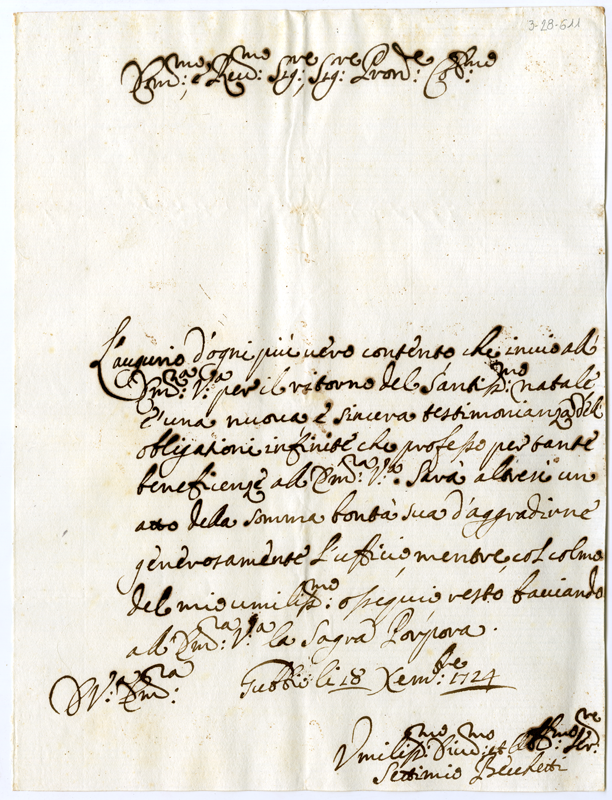 3-28-611
Em:mo e Rev:mo Sig:re, Sig:re Pron:e Col:mo
L'augurio d'ogni più uero contento che inuio all'
Em:za V:a per il ritorno del Santiss:mo natale
è una nuoua è sincera testimonianza del
obligationi infinite che professo per tante
beneficenze all Em:za V:a. Sarà altresi un
atto della somma bontà sua d'aggradirne
generosamente l'ufficio mentre col colmo
del mio umiliss:mo osséquio resto baciando
all Em:za V:a la Sagra Pórpora.
D V:a Em:za
Gubbio li 18 Xem:bre 1724
Vmiliss:mo Diuo:mo et Ser:re
Settimio Becchetti